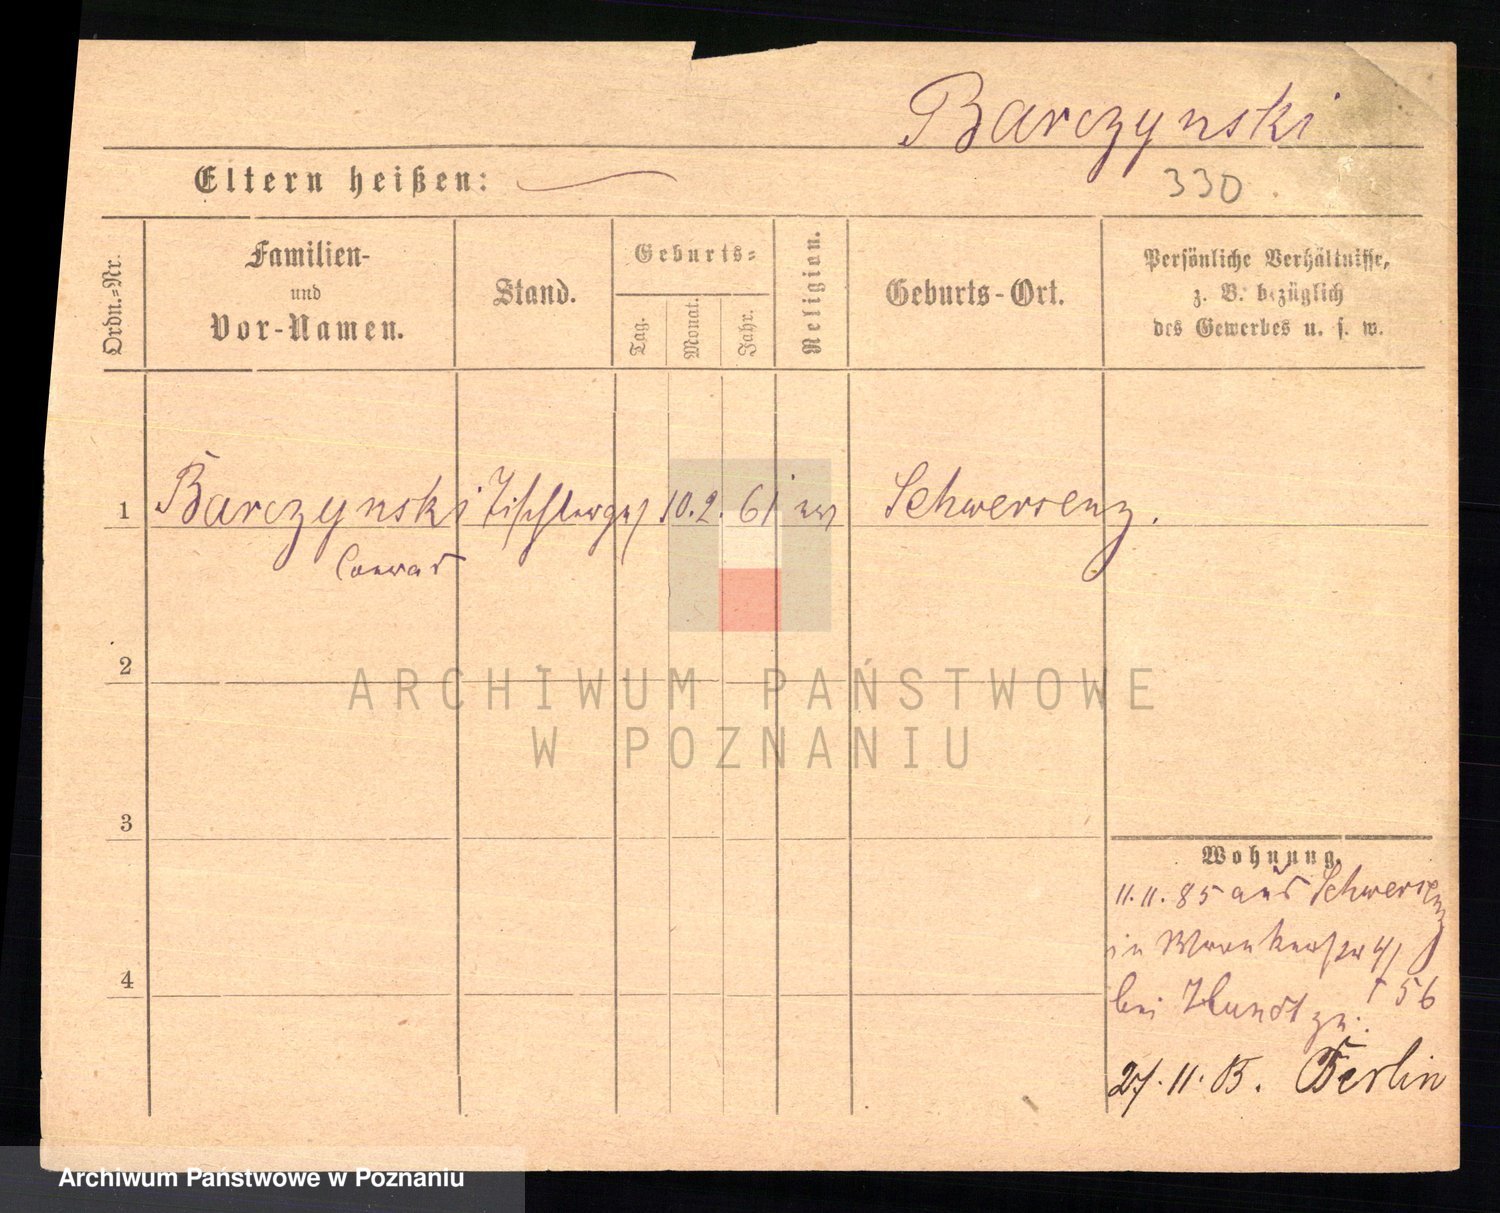 Barczynski
Eltern heißen:
330.
Ordn.-Nr.
Familien-
und
Vor-Namen.
Stand.
Geburts-
Tag.
Monat.
Jahr.
Religion.
Geburts-Ort.
Persönliche Verhältnisse,
z. B. bezüglich
des Gewerbes u. s. w.
1 Barczynski Tischlerges 10. 2. 61 ev Schwersenz.
Conrad
2
ARCHIWUM PAŃSTWOWE
W POZNANIU
3
Wohnung.
11. 11. 85 aus Schwersenz
in
4
bei zu. 56
11. Berlin
Archiwum Państwowe w Poznaniu